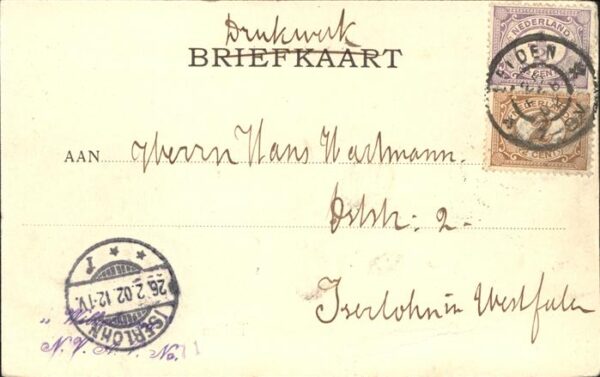 Drukwerk
BRIEFKAART
NEDERLAND
CENT
LEIDEN
CENT
AAN Herrn Hans Hartmann.
Oststr: 2.
Iserlohn in Westfalen
ISERLOHN
26.2.02.12-1V.
* * 1
N.V.
No.